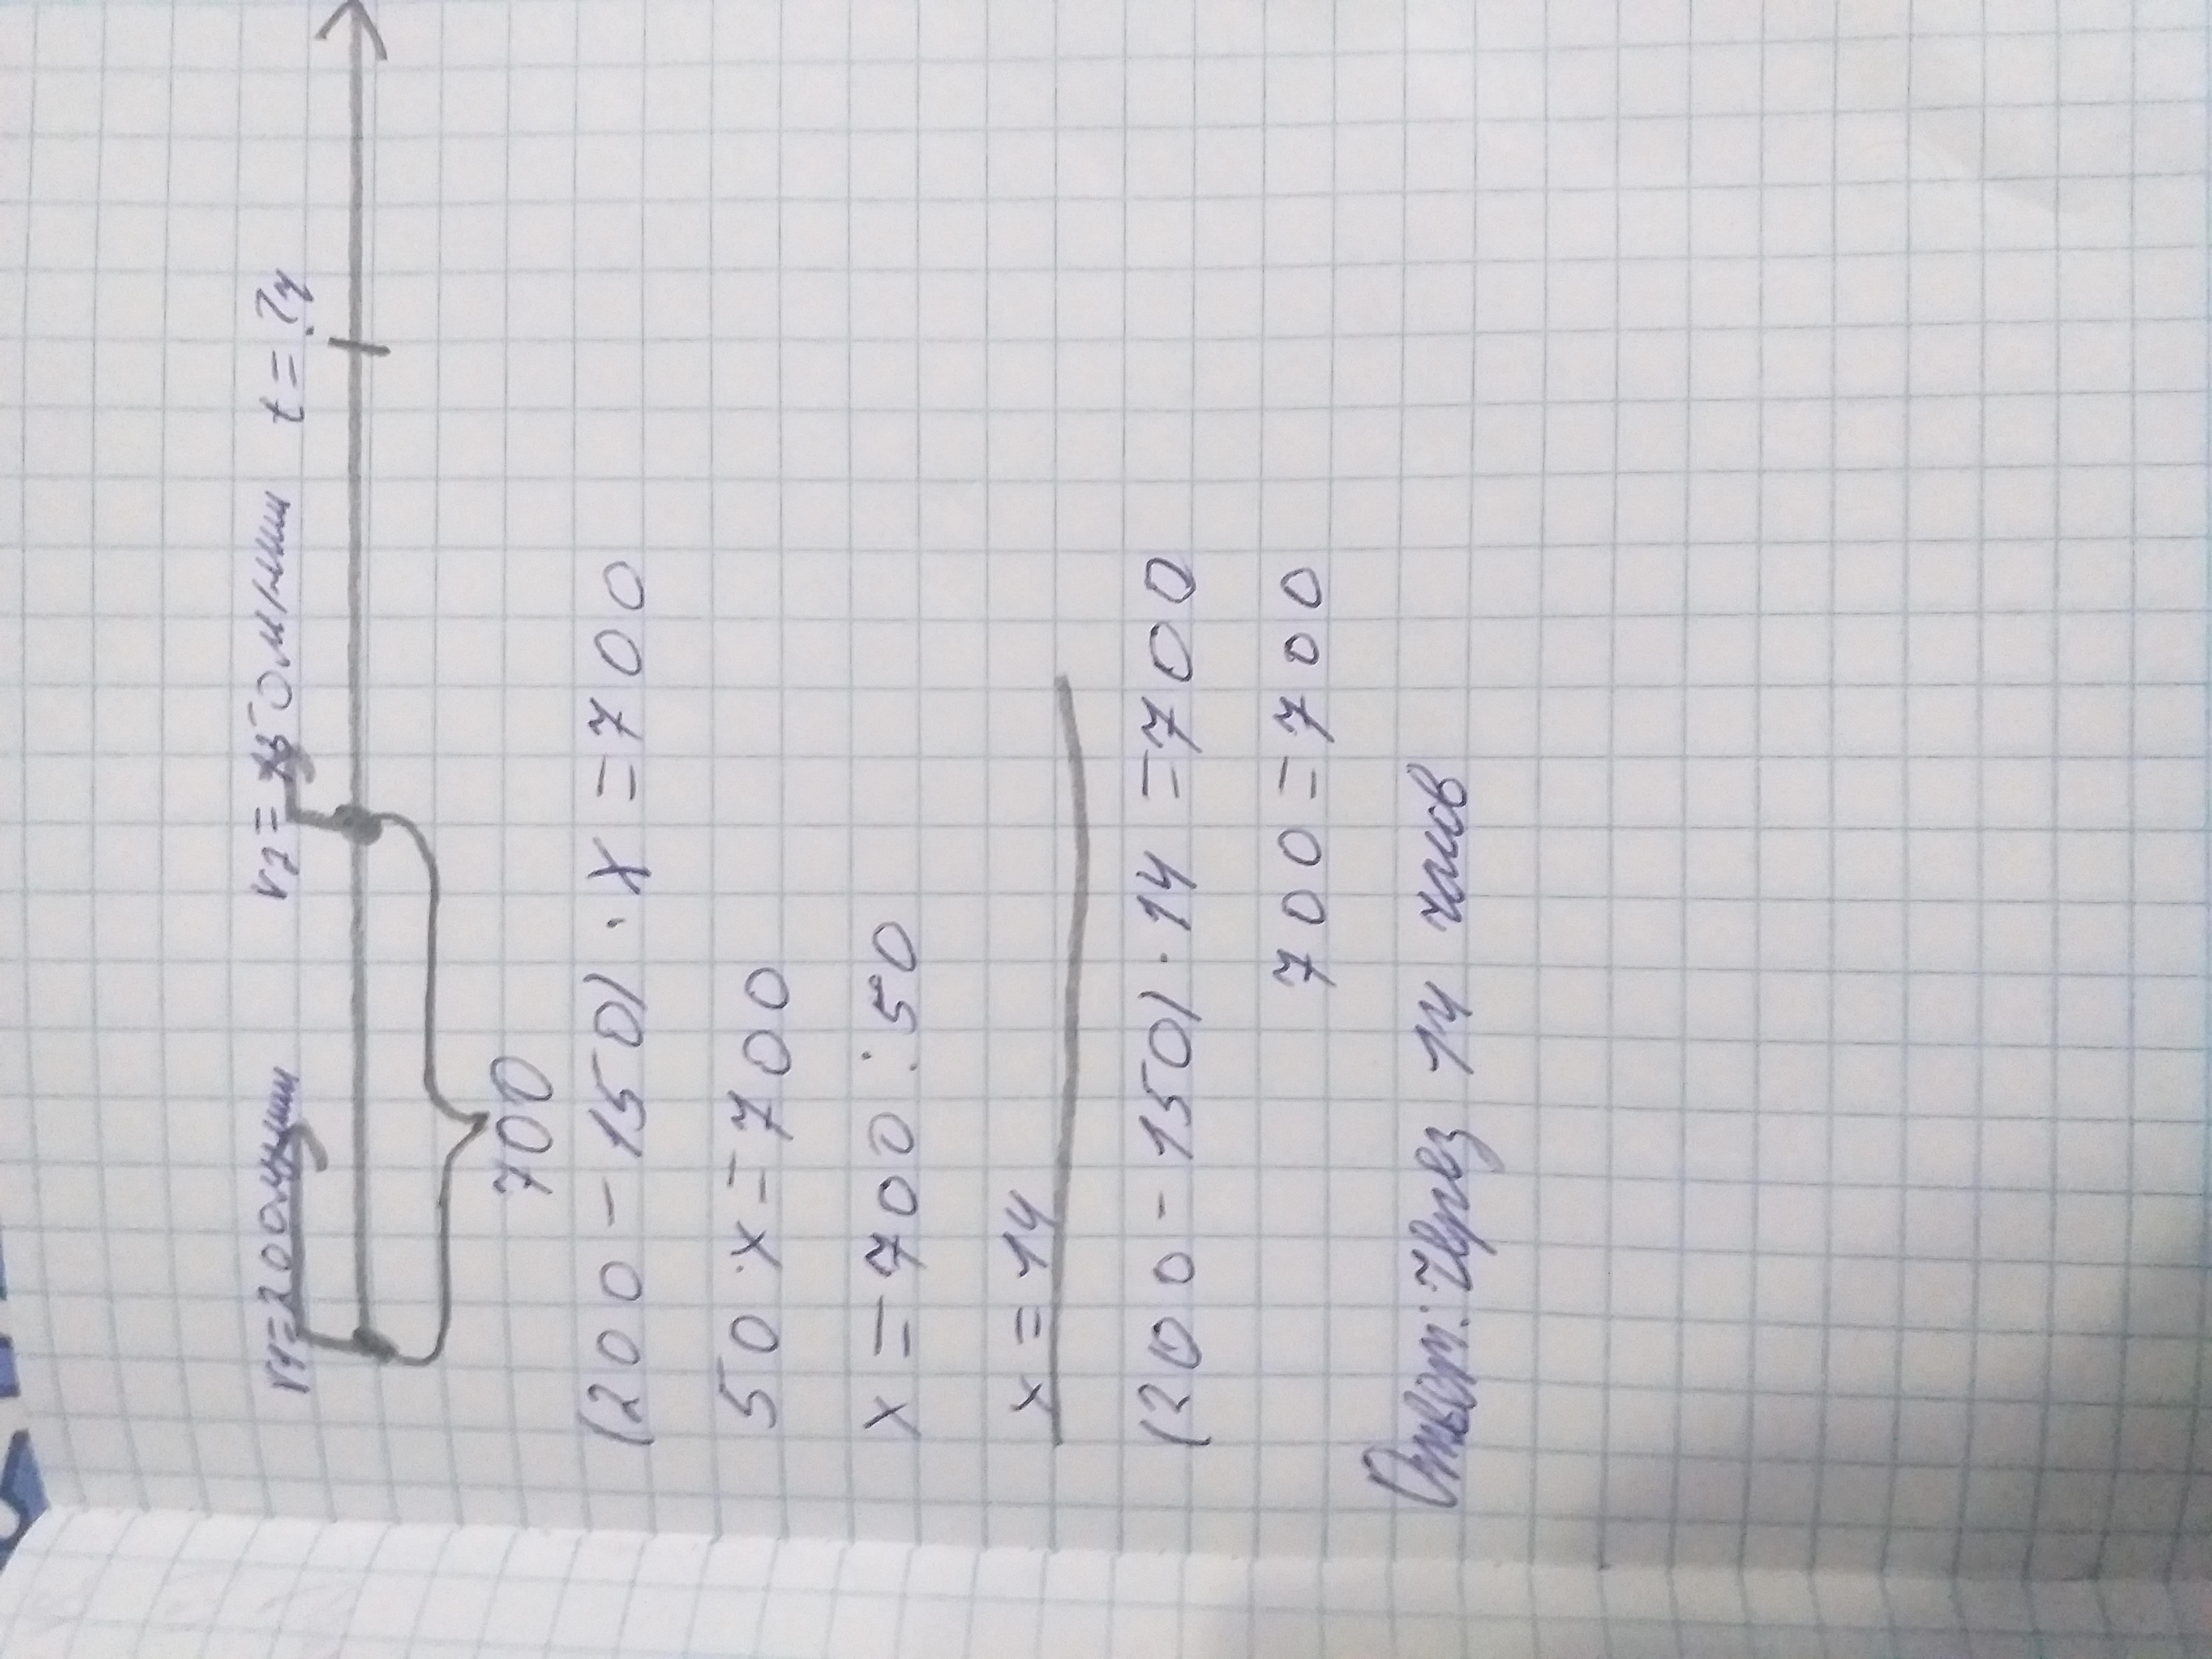 v1=200м/мин v2=150м/мин t=?ч
700
(200-150)·x=700
50·x=700
x=700:50
x=14
(200-150)·14=700
700=700
Ответ: Через 14 часов